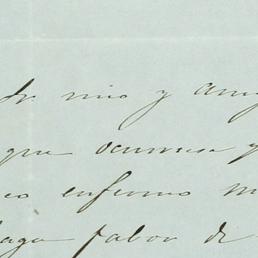 Sr mio y amig
que ocurrese y
co enfermo m
haga fabor de